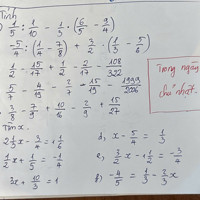 Tính
1/5 : 1/10 - 1/3 · (6/5 - 9/4)
-5/4 : (1/4 - 7/8) + 3/2 · (1/3 - 5/6)
1/2 - 15/17 + 1/2 - 2/17 - 108/322
5 - 4/19 - 3/7 - 15/19 - 1999/2006
3/8 - 7/9 + 10/16 - 2/9 + 15/27
Trong ngoặc
chỗ nhất.
Tìm x.
2 1/3 x - 3/4 = 1 1/6
1/2 x + 1/5 = -1/4
3x + 10/3 = 1
d, x - 5/4 = 1/3
e, 3/2 x - 1/2 = -3/4
f) -4/5 = 1/3 - 2/3 x